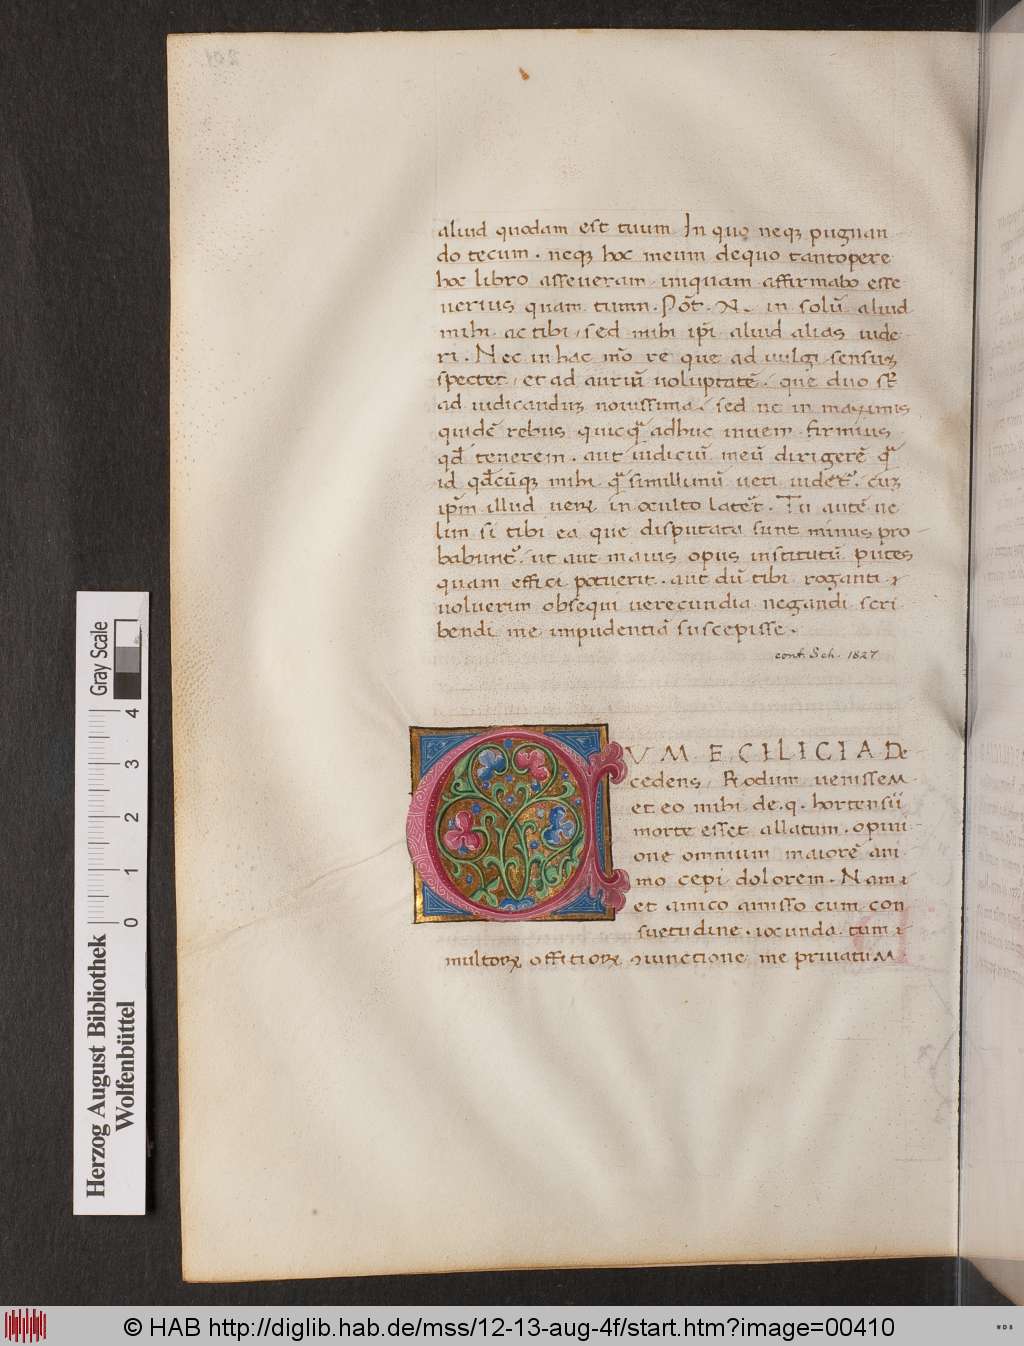 aliud quodam est tuum In quo neqꝫ pugnan
do tecum . neqꝫ hoc meum dequo tantopere
hoc libro asseueram unquam affirmabo esse
uerius quam tuum . Põt . N . in solũ aliud
mihi ac tibi , sed mihi ip̃i aliud alias uide
ri . Nec in hac mõ re que ad uulgi sensuꝫ
spectet , et ad auriũ uoluptatẽ . que duo sr̃
ad iudicanduꝫ nouissima , sed ne in maximis
quidẽ rebus quicq̃ adhuc inueni firmius
qd̃ tenerem . aut iudiciũ meũ dirigerẽ q̃
id qd̃cũqꝫ mihi q̃ simillimũ ueri uideret̃ . cuꝫ
ip̃m illud ueꝝ in oculto lateret̃ . Tu autẽ ue
lim si tibi ea que disputata sunt minus pro
babunt̃ . ut aut maius opus institutũ putes
quam effici potuerit . aut dũ tibi roganti
uoluerim obsequi uerecundia negandi scri
bendi me impudentiã suscepisse .
conf. Sch. 1827
VM E CILICIA De
cedens , Rodum uenissem
et eo mihi de . q . hortensii
morte esset allatum . opini
one omnium maiorẽ ani
mo cepi dolorem . Nam
et amico amisso cum con
suetudine . iocunda . tum
multoꝝ offitioꝝ ꝯiunctione me priuatum
Gray Scale
4
3
2
1
0
Herzog August Bibliothek
Wolfenbüttel
© HAB http://diglib.hab.de/mss/12-13-aug-4f/start.htm?image=00410